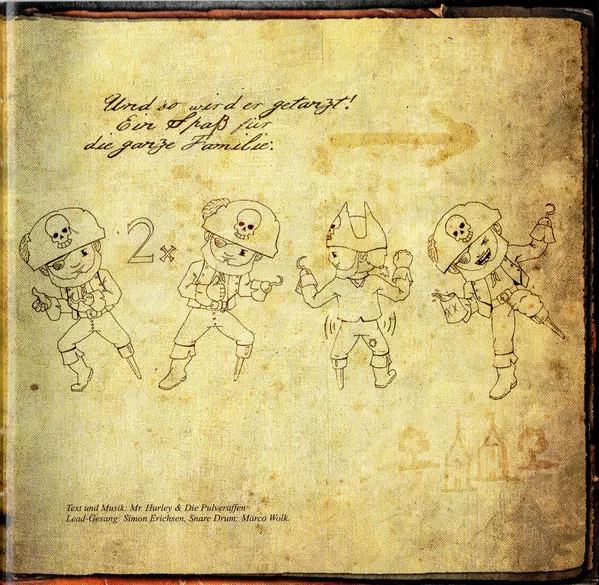 Und so wird er getanzt!
Ein Spaß für
die ganze Familie.
2x
Text und Musik: Mr. Hurley & Die Pulveraffen
Lead-Gesang: Simon Erichsen, Snare Drum: Marco Wolk.